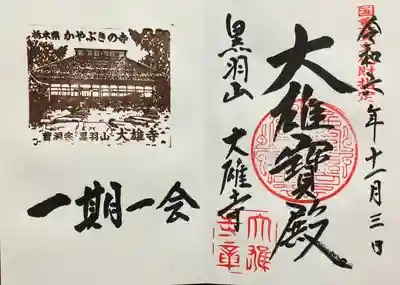 令和六年十一月三日
大雄寳殿
黒羽山 大雄寺
大雄
寺章
栃木県 かやぶきの寺
曹洞宗 黒羽山 大雄寺
一期一会